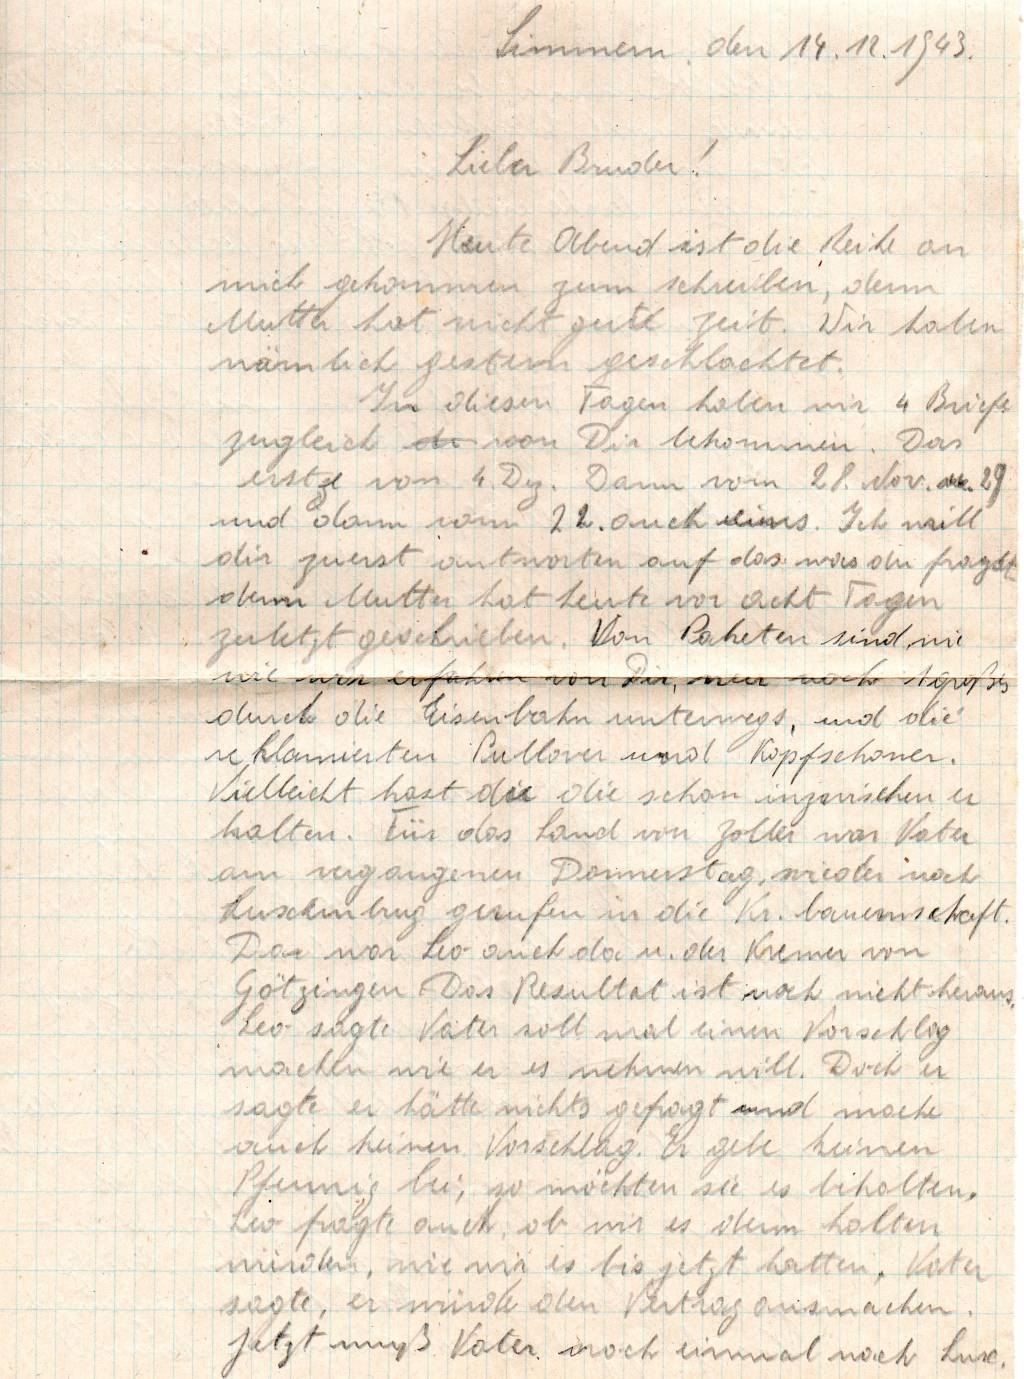 Simmern, den 14.12.1943.
Lieber Bruder!
Heute Abend ist die Reihe an
mich gekommen zum schreiben, denn
Mutter hat nicht gute Zeit. Wir haben
nämlich gestern geschlachtet.
In diesen Tagen haben wir 4 Briefe
zugleich do von Dir bekommen. Das
erste von 4. Dez. Dann vom 28. Nov. u. 29
und dann vom 22. auch eins. Ich will
dir zuerst antworten auf das was du fragst
denn Mutter hat heute vor acht Tagen
zuletzt geschrieben. Von Paketen sind, wie
wie wir erfahren von Dir, nur noch 1 großes
durch die Eisenbahn unterwegs, und die
reklamierten Pullover und Kopfschoner.
Vielleicht hast du die schon inzwischen er
halten. Für das Land von Zoller war Vater
am vergangenen Donnerstag, wieder nach
Luxemburg gerufen in die Kr. bauernschaft.
Da war Leo auch da u. der Kremer von
Götzingen Das Resultat ist noch nicht heraus.
Leo sagte Vater soll mal einen Vorschlag
machen wie er es nehmen will. Doch er
sagte er hätte nichts gefragt und mache
auch keinen Vorschlag. Er gebe keinen
Pfennig bei, so möchten sie es behalten.
Leo fragte auch, ob wir es denn halten
würden, wie wir es bis jetzt hatten, Vater
sagte, er würde den Vertrag ausmachen.
Jetzt muß Vater noch einmal nach Lux.